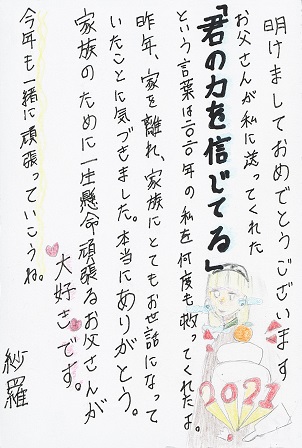 明けましておめでとうございます
お父さんが私に送ってくれた
「君の力を信じてる」
という言葉は二〇二〇年の私を何度も救ってくれたよ。
昨年、家を離れ、家族にとてもお世話になって
いたことに気づきました。本当にありがとう。
家族のために一生懸命頑張るお父さんが
大好きです。
今年も一緒に頑張っていこうね。
紗羅
2021